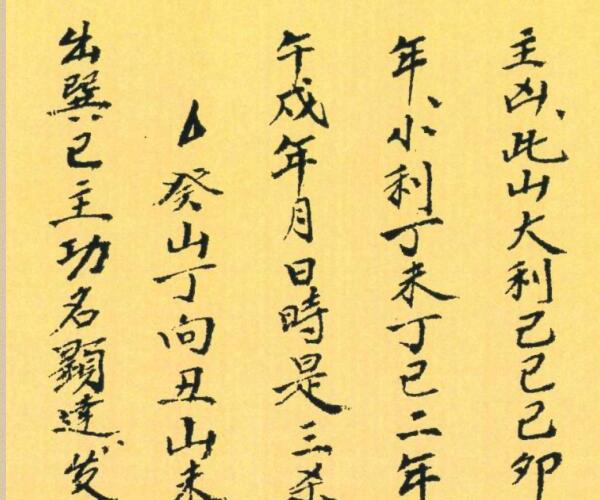 主凶、此山大利己巳己卯
年、小利丁未丁巳二年
午戌年月日時是三杀
癸山丁向丑山未
出巽巳主功名顯達发